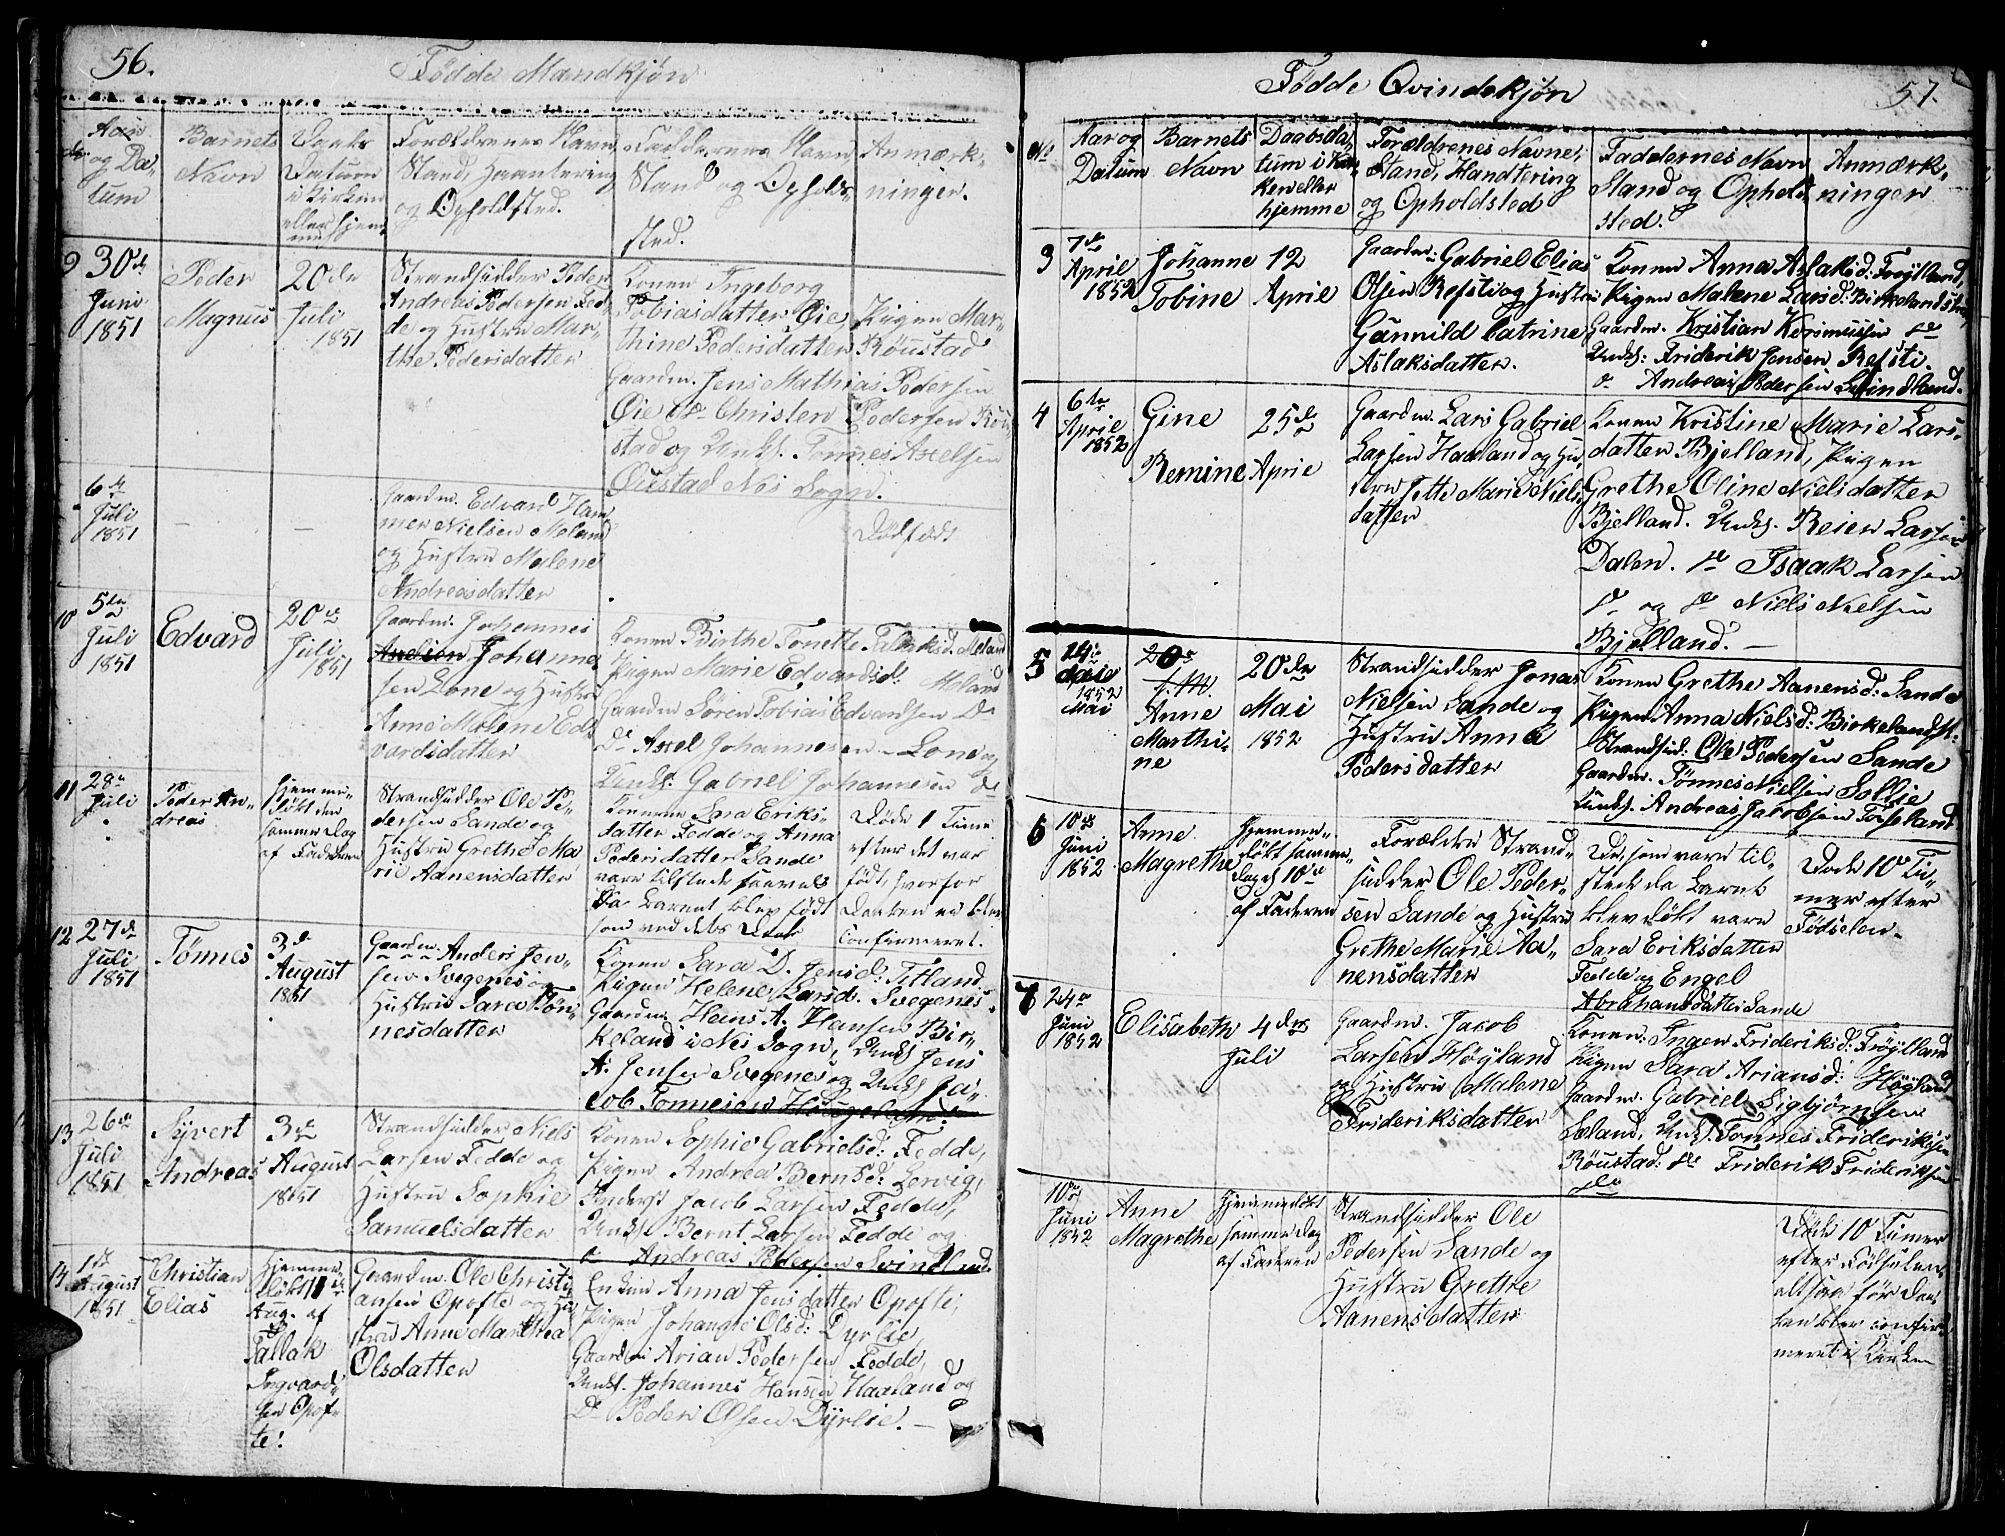 56.
Fødde Mandkjøn
Aar og Datum
Barnets Navn
Daabs Datum i Kirken eller hjemme
Forældrenes Navn, Stand, Haantering og Opholdsted.
Faddernes Navn, Stand og Opholdssted.
Anmærkninger.
9
30de Juni 1851
Peder Magnus
20de Juli 1851
Strandsidder Peder
Andreas Pedersen Fed-
de og Hustru Mar-
the Pedersdatter
Konen Ingeborg
Tobiasdatter Øie, Pigen Mar-
thine Pedersdatter Røustad
Gaardm. Jens Mathias Pedersen
Øie do Christen Pedersen Røu-
stad og Unks. Tønnes Axelsen
Øiestad Nes Sogn.
6te Juli 1851
Gaardm. Edvard Ham-
mer Nielsen Moland
og Hustru Malene
Andreasdatter
Dødfødt
10
5te Juli 1851
Edvard
20de Juli 1851
Gaardm. Johannes
Axelsen Johanne-
sen Lone og Hustru
Anne Malene Ed-
vardsdatter
Konen Birthe Tonette Tallaksd. Moland
Pigen Marie Edvardsd. Moland
Gaardm Søren Tobias Edvardsen Do
Do Axel Johannesen Lone og
Unks. Gabriel Johannesen do
11
28de Juli
Peder Andreas
Hjemme-
døbt den
samme Dag
af Faderen
Strandsidder Ole Pe-
dersen Sande og
Hustru Grethe Ma-
rie Aanensdatter
Konerne Sara Eriks-
datter Fedde og Anna
Pedersdatter Sande
vare tilstede saavel
da Barnet blev født
som ved dets Daab
Døde 1 Time
efter det var
født, hvorfor
Daaben ei blev
Confirmeret.
12
27de Juli 1851
Tønnes
3de August 1851
Gaardm. Anders Jen-
sen Svegenes og
Hustru Sara Tøn-
nesdatter
Konen Sara D. Jensd. Titland
Pigen Helene Larsd. Svegenes
Gaardm. Hans A. Hansen Bir-
keland i Nes Sogn, Unks Jens
A. Jensen Svegenes og Unks Ja-
cob Tønnesen Haugeland.
13
26de Juli 1851
Syvert Andreas
3de August 1851
Strandsidder Niels
Larsen Fedde og
Hustru Sophie
Samuelsdatter
Konen Sophie Gabrielsd: Fedde,
Pigen Andrea Berntsd: Lervig,
Jacob Larsen Fedde,
Unks Bernt Larsen Fedde og
Andreas Pedersen Svindland.
14
1ste August 1851
Christian Elias
Hjemme-
døbt
Aug. af
Tallak
Ingvard-
sen Opof-
te!
Gaardm. Ole Christi-
ansen Opofte og Hu-
stru Anne Marthea
Olsdatter
Enken Anna Jensdatter Opofte,
Pigen Johanne Olsd: Dyrlie
Gaardm Arian Pedersen Fedde,
Unks. Johannes Hansen Haaland og
Do Peder Olsen Dyrlie.
Fødde Qvindekjøn
57.
No
Aar og Datum
Barnets Navn
Daabsdatum i Kirken eller hjemme
Forældrenes Navne, Stand, Handtering og Opholdsted
Faddernes Navn Stand og Opholdssted.
Anmærkninger
3
7de April 1852
Johanne Tobine
12 April
Gaardm: Gabriel Elias
Olsen Refsti og Hustru
Gunnild Catrine
Aslaksdatter.
Konen Anna Aslaksd: Frøyland,
Pigen Malene Larsd: Birkeland
Gaardm. Kristian do
Unks: Friderik Jensen Refsti.
do Andreas Pedersen Svindland.
4
6te April 1852
Gine Remine
25de Aprie
Gaardm. Lars Gabriel
Larsen Haaland og Hu-
stru Jette Marie Niels-
datter
Konen Kristine Marie Lars-
datter Bjelland, Pigen
Grethe Oline Nielsdatter
Bjelland. Unks. Reier Larsen
Dalen. do Isaak Larsen
do og do Niels Nielsen
Bjelland. —
5
14de
1852
Mai
Anne Marthine
20de Mai 1852
Strandsidder Jonas
Nielsen Sande og
Hustru Anne
Pedersdatter
Konen Grethe Aanensd: Sande
Pigen Anna Nielsd: Birkeland
Strandsid: Ole Pedersen Sande
Gaardm. Tønnes Nielsen Sollie
Unks. Andreas Jacobsen Foseland
6
10de Juni 1852
Anne Magrethe
Hjemme-
døbt samme
dag d 10de
af Faderen
Forældre Strand-
sidder Ole Peder-
sen Sande og Hustru
Grethe Marie Aa-
nensdatter
De, som vare til-
stede da Barnet
blev døbt vare
Sara Eriksdatter
Fedde og Engel
Abrahamsdatter Sande
Døde 10 Ti-
mer efter
Fødselen.
7
24de Juni 1852
Elisabeth
4de Juli
Gaardm. Jacob
Larsen Høyland
og Hustru Malene
Frideriksdatter
Konen: Ingen Frideriksd: Frøylland
Pigen Sara Ariansd: Høyland
Gaardm. Gabriel Sigbjørnsen
Læland, Unks. Tønnes Frideriksen
Røustad: do Friderik Frideriksen
do
10de Juni 1852
Anne Magrethe
Hjemmedøbt
samme Dag
af Faderen
Strandsidder Ole
Pedersen Sande og
Hustru Grethe
Aanensdatter
Døde 10 Timer
efter Fødselen,
altsaa før Daa-
ben blev confir-
meret i Kirken